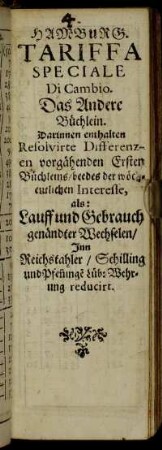 4.
HAMBURG.
TARIFFA
SPECIALE
Di Cambio.
Das Andere
Büchlein.
Darinnen enthalten
Resolvirte Differenz-
en vorgåhenden Ersten
Büchleins / beedes der wöch-
entlichen Interesse,
als:
Lauff und Gebrauch
genandter Wechselen /
Inn
Reichstahler / Schilling
und Pfeñinge Lüb: Wehr-
ung reducirt.